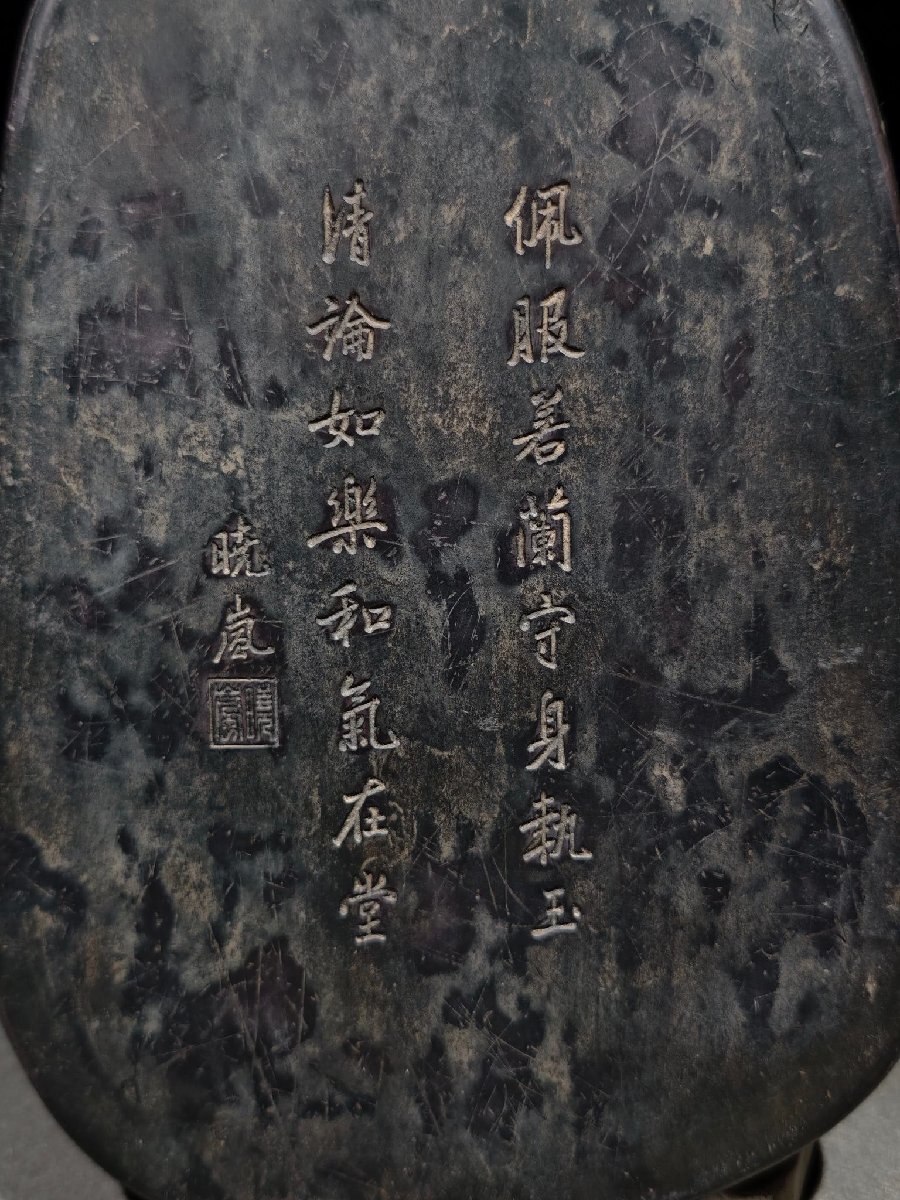 佩服若蘭守身執玉
清論如樂和氣在堂
曉嵐